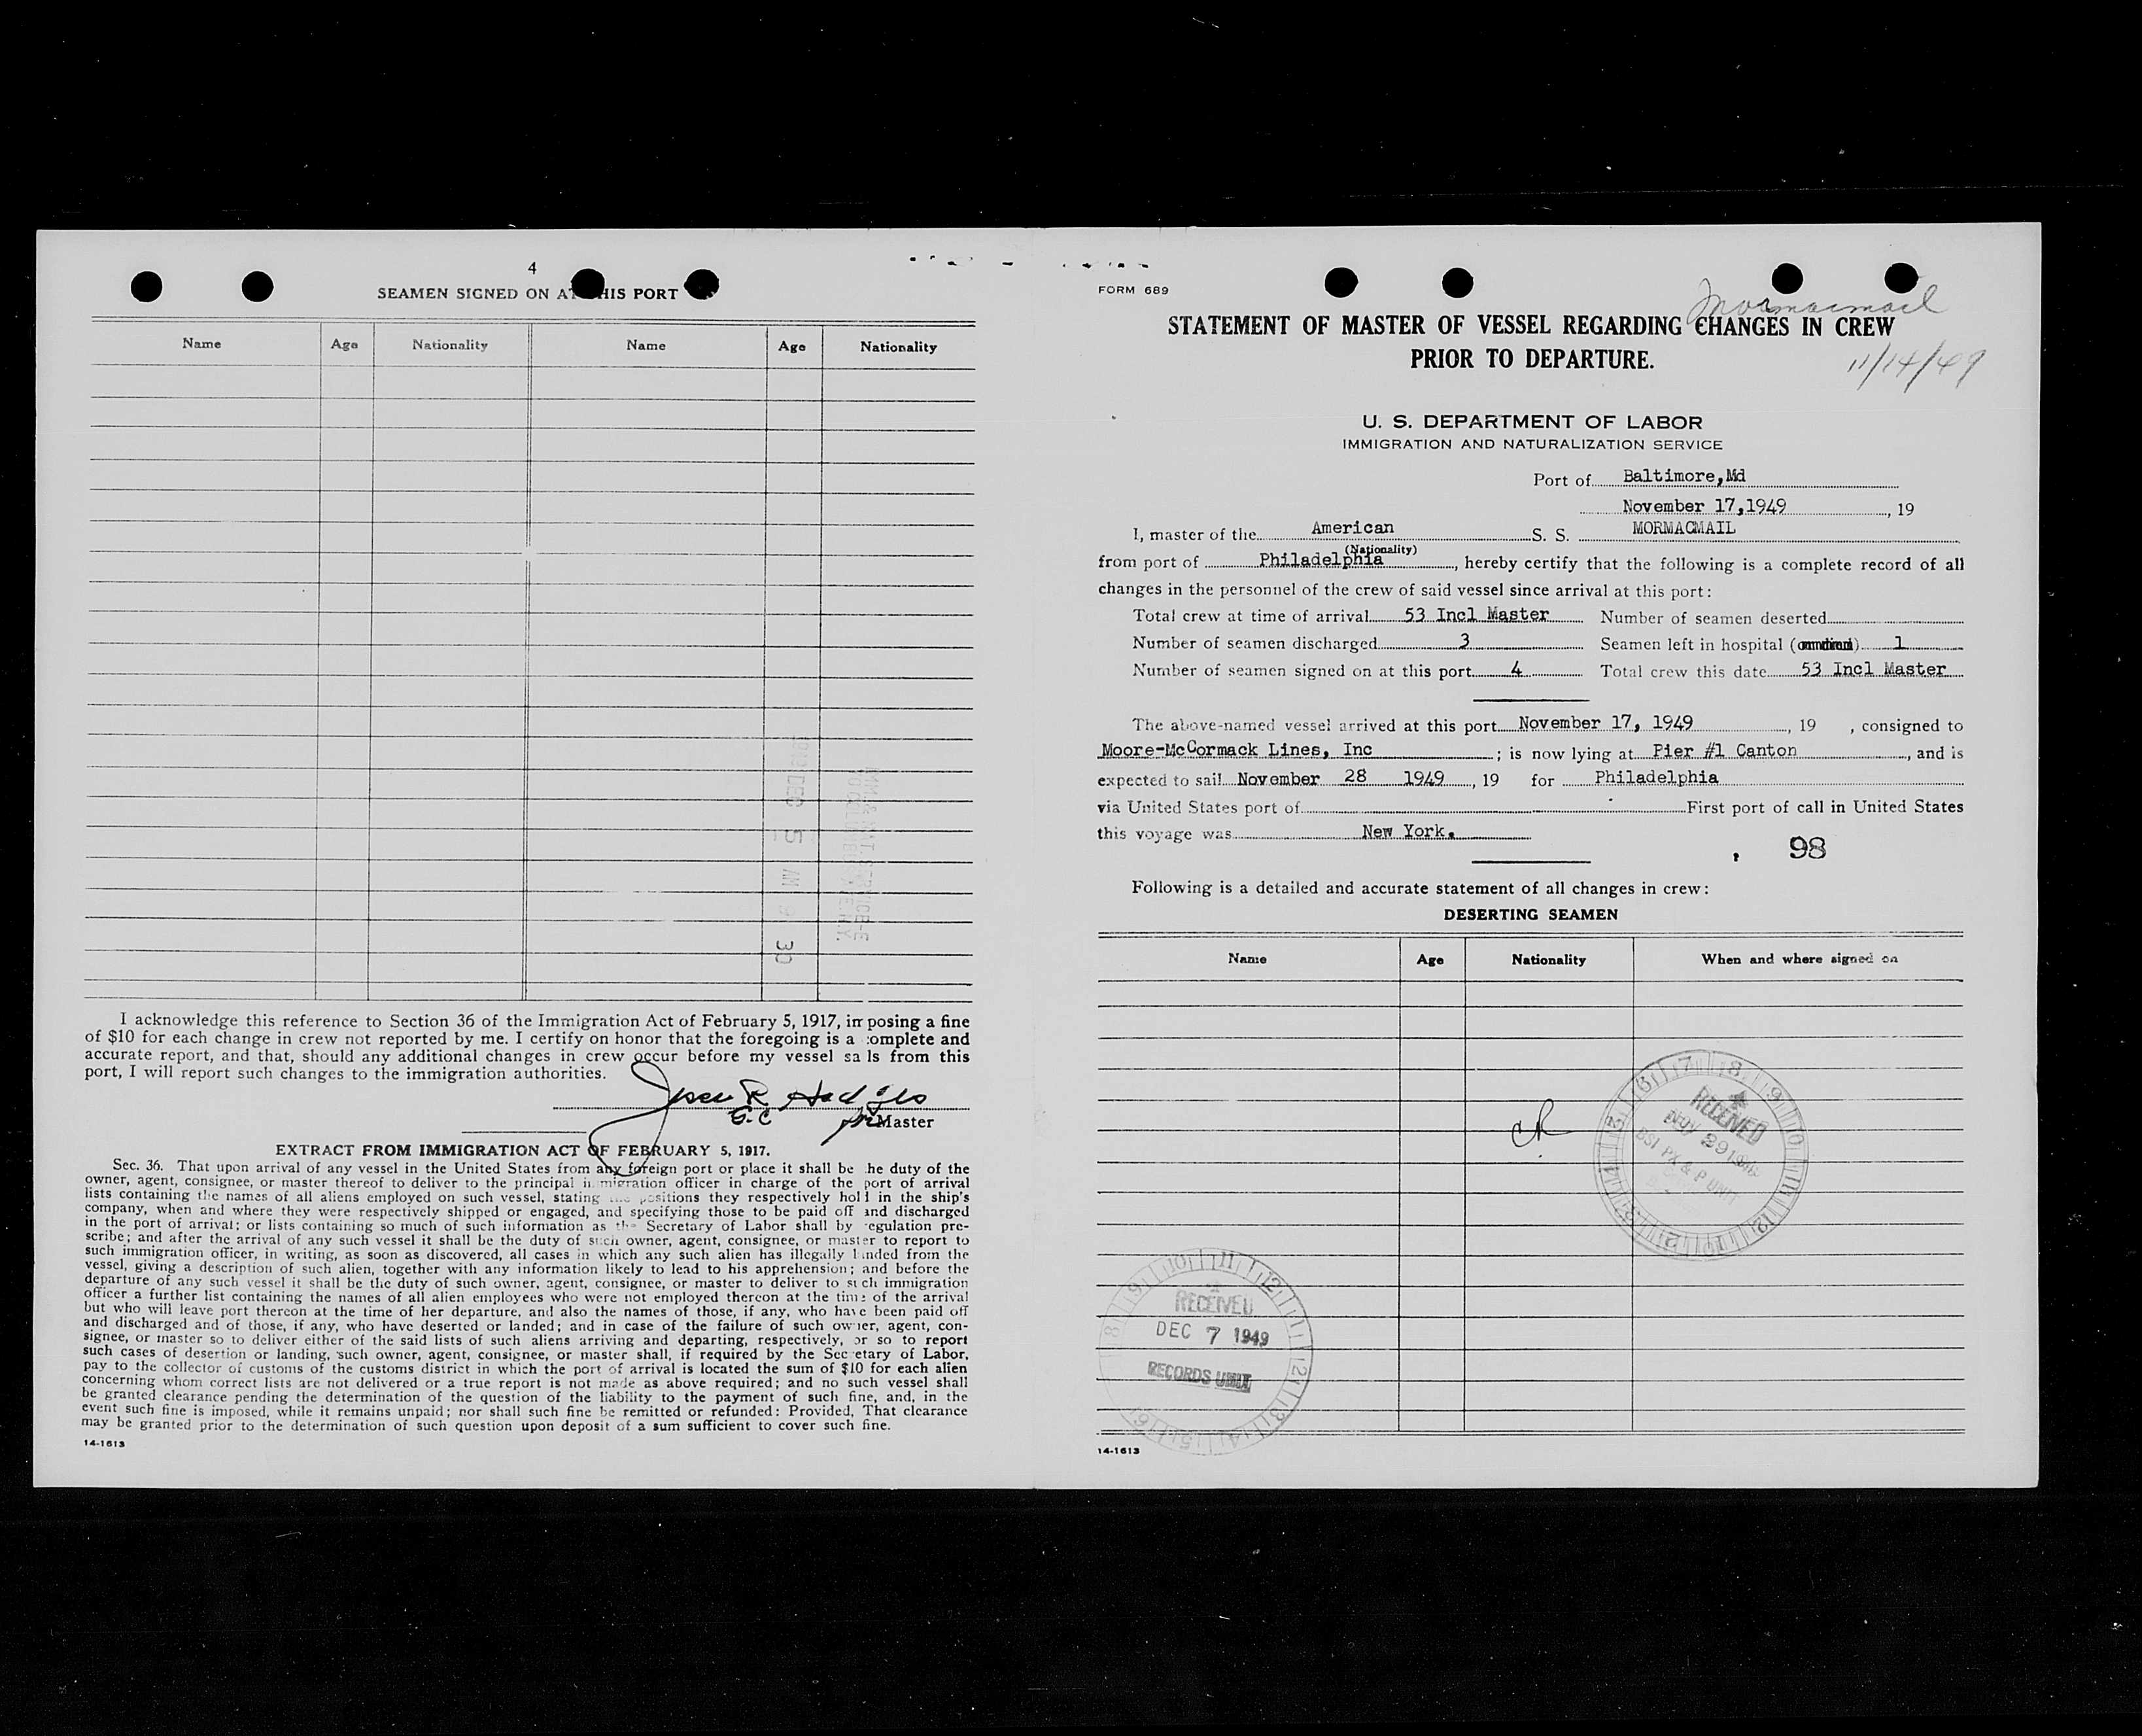 4
SEAMEN SIGNED ON AT THIS PORT
Name Age Nationality Name Age Nationality
DEC 5 AM 9 30
I acknowledge this reference to Section 36 of the Immigration Act of February 5, 1917, imposing a fine
of $10 for each change in crew not reported by me. I certify on honor that the foregoing is a complete and
accurate report, and that, should any additional changes in crew occur before my vessel sails from this
port, I will report such changes to the immigration authorities.
Master
EXTRACT FROM IMMIGRATION ACT OF FEBRUARY 5, 1917.
Sec. 36. That upon arrival of any vessel in the United States from any foreign port or place it shall be the duty of the
owner, agent, consignee, or master thereof to deliver to the principal immigration officer in charge of the port of arrival
lists containing the names of all aliens employed on such vessel, stating the positions they respectively hold in the ship's
company, when and where they were respectively shipped or engaged, and specifying those to be paid off and discharged
in the port of arrival; or lists containing so much of such information as the Secretary of Labor shall by regulation pre-
scribe; and after the arrival of any such vessel it shall be the duty of such owner, agent, consignee, or master to report to
such immigration officer, in writing, as soon as discovered, all cases in which any such alien has illegally landed from the
vessel, giving a description of such alien, together with any information likely to lead to his apprehension; and before the
departure of any such vessel it shall be the duty of such owner, agent, consignee, or master to deliver to such immigration
officer a further list containing the names of all alien employees who were not employed thereon at the time of the arrival
but who will leave port thereon at the time of her departure, and also the names of those, if any, who have been paid off
and discharged and of those, if any, who have deserted or landed; and in case of the failure of such owner, agent, con-
signee, or master so to deliver either of the said lists of such aliens arriving and departing, respectively, or so to report
such cases of desertion or landing, such owner, agent, consignee, or master shall, if required by the Secretary of Labor,
pay to the collector of customs of the customs district in which the port of arrival is located the sum of $10 for each alien
concerning whom correct lists are not delivered or a true report is not made as above required; and no such vessel shall
be granted clearance pending the determination of the question of the liability to the payment of such fine, and, in the
event such fine is imposed, while it remains unpaid; nor shall such fine be remitted or refunded: Provided, That clearance
may be granted prior to the determination of such question upon deposit of a sum sufficient to cover such fine.
14-1613
FORM 689
Mormacmail
STATEMENT OF MASTER OF VESSEL REGARDING CHANGES IN CREW
PRIOR TO DEPARTURE.
11/14/49
U. S. DEPARTMENT OF LABOR
IMMIGRATION AND NATURALIZATION SERVICE
Port of Baltimore,Md
November 17,1949, 19
I, master of the American S. S. MORMACMAIL
(Nationality)
from port of Philadelphia, hereby certify that the following is a complete record of all
changes in the personnel of the crew of said vessel since arrival at this port:
Total crew at time of arrival 53 Incl Master Number of seamen deserted
Number of seamen discharged 3 Seamen left in hospital ( ) 1
Number of seamen signed on at this port 4 Total crew this date 53 Incl Master
The above-named vessel arrived at this port November 17, 1949, 19 , consigned to
Moore-McCormack Lines, Inc ; is now lying at Pier #1 Canton, and is
expected to sail November 28 1949, 19 for Philadelphia
via United States port of First port of call in United States
this voyage was New York.
98
Following is a detailed and accurate statement of all changes in crew:
DESERTING SEAMEN
Name Age Nationality When and where signed on
RECEIVED
BSI PX & P UNIT
RECEIVED
DEC 7 1949
RECORDS UNIT
14-1613